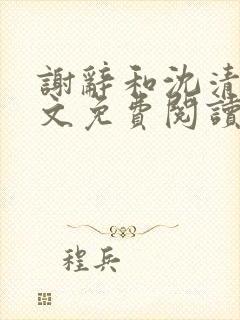 謝辭和沈清
文免費閱讀
程兵